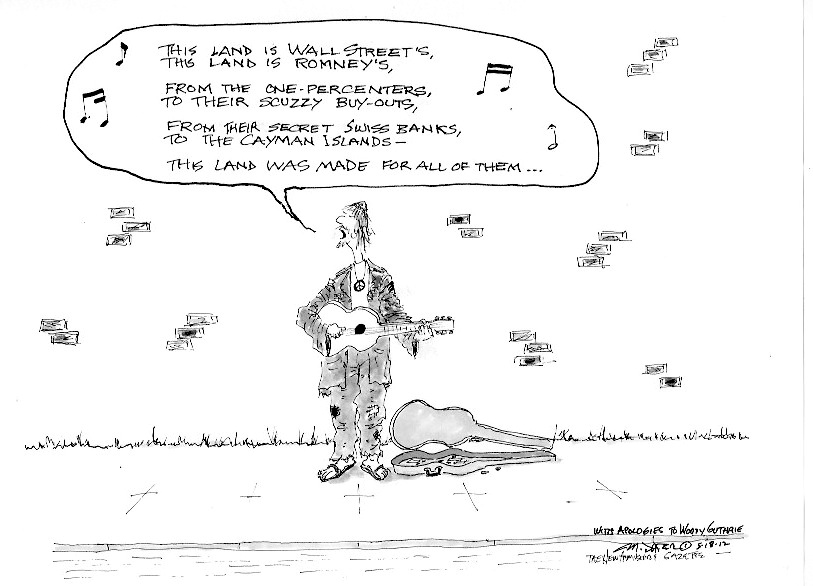 THIS LAND IS WALL STREET'S,
THIS LAND IS ROMNEY'S,
FROM THE ONE-PERCENTERS,
TO THEIR SCUZZY BUY-OUTS,
FROM THEIR SECRET SWISS BANKS,
TO THE CAYMAN ISLANDS—
THIS LAND WAS MADE FOR ALL OF THEM...
WITH APOLOGIES TO WOODY GUTHRIE
GAZETTE